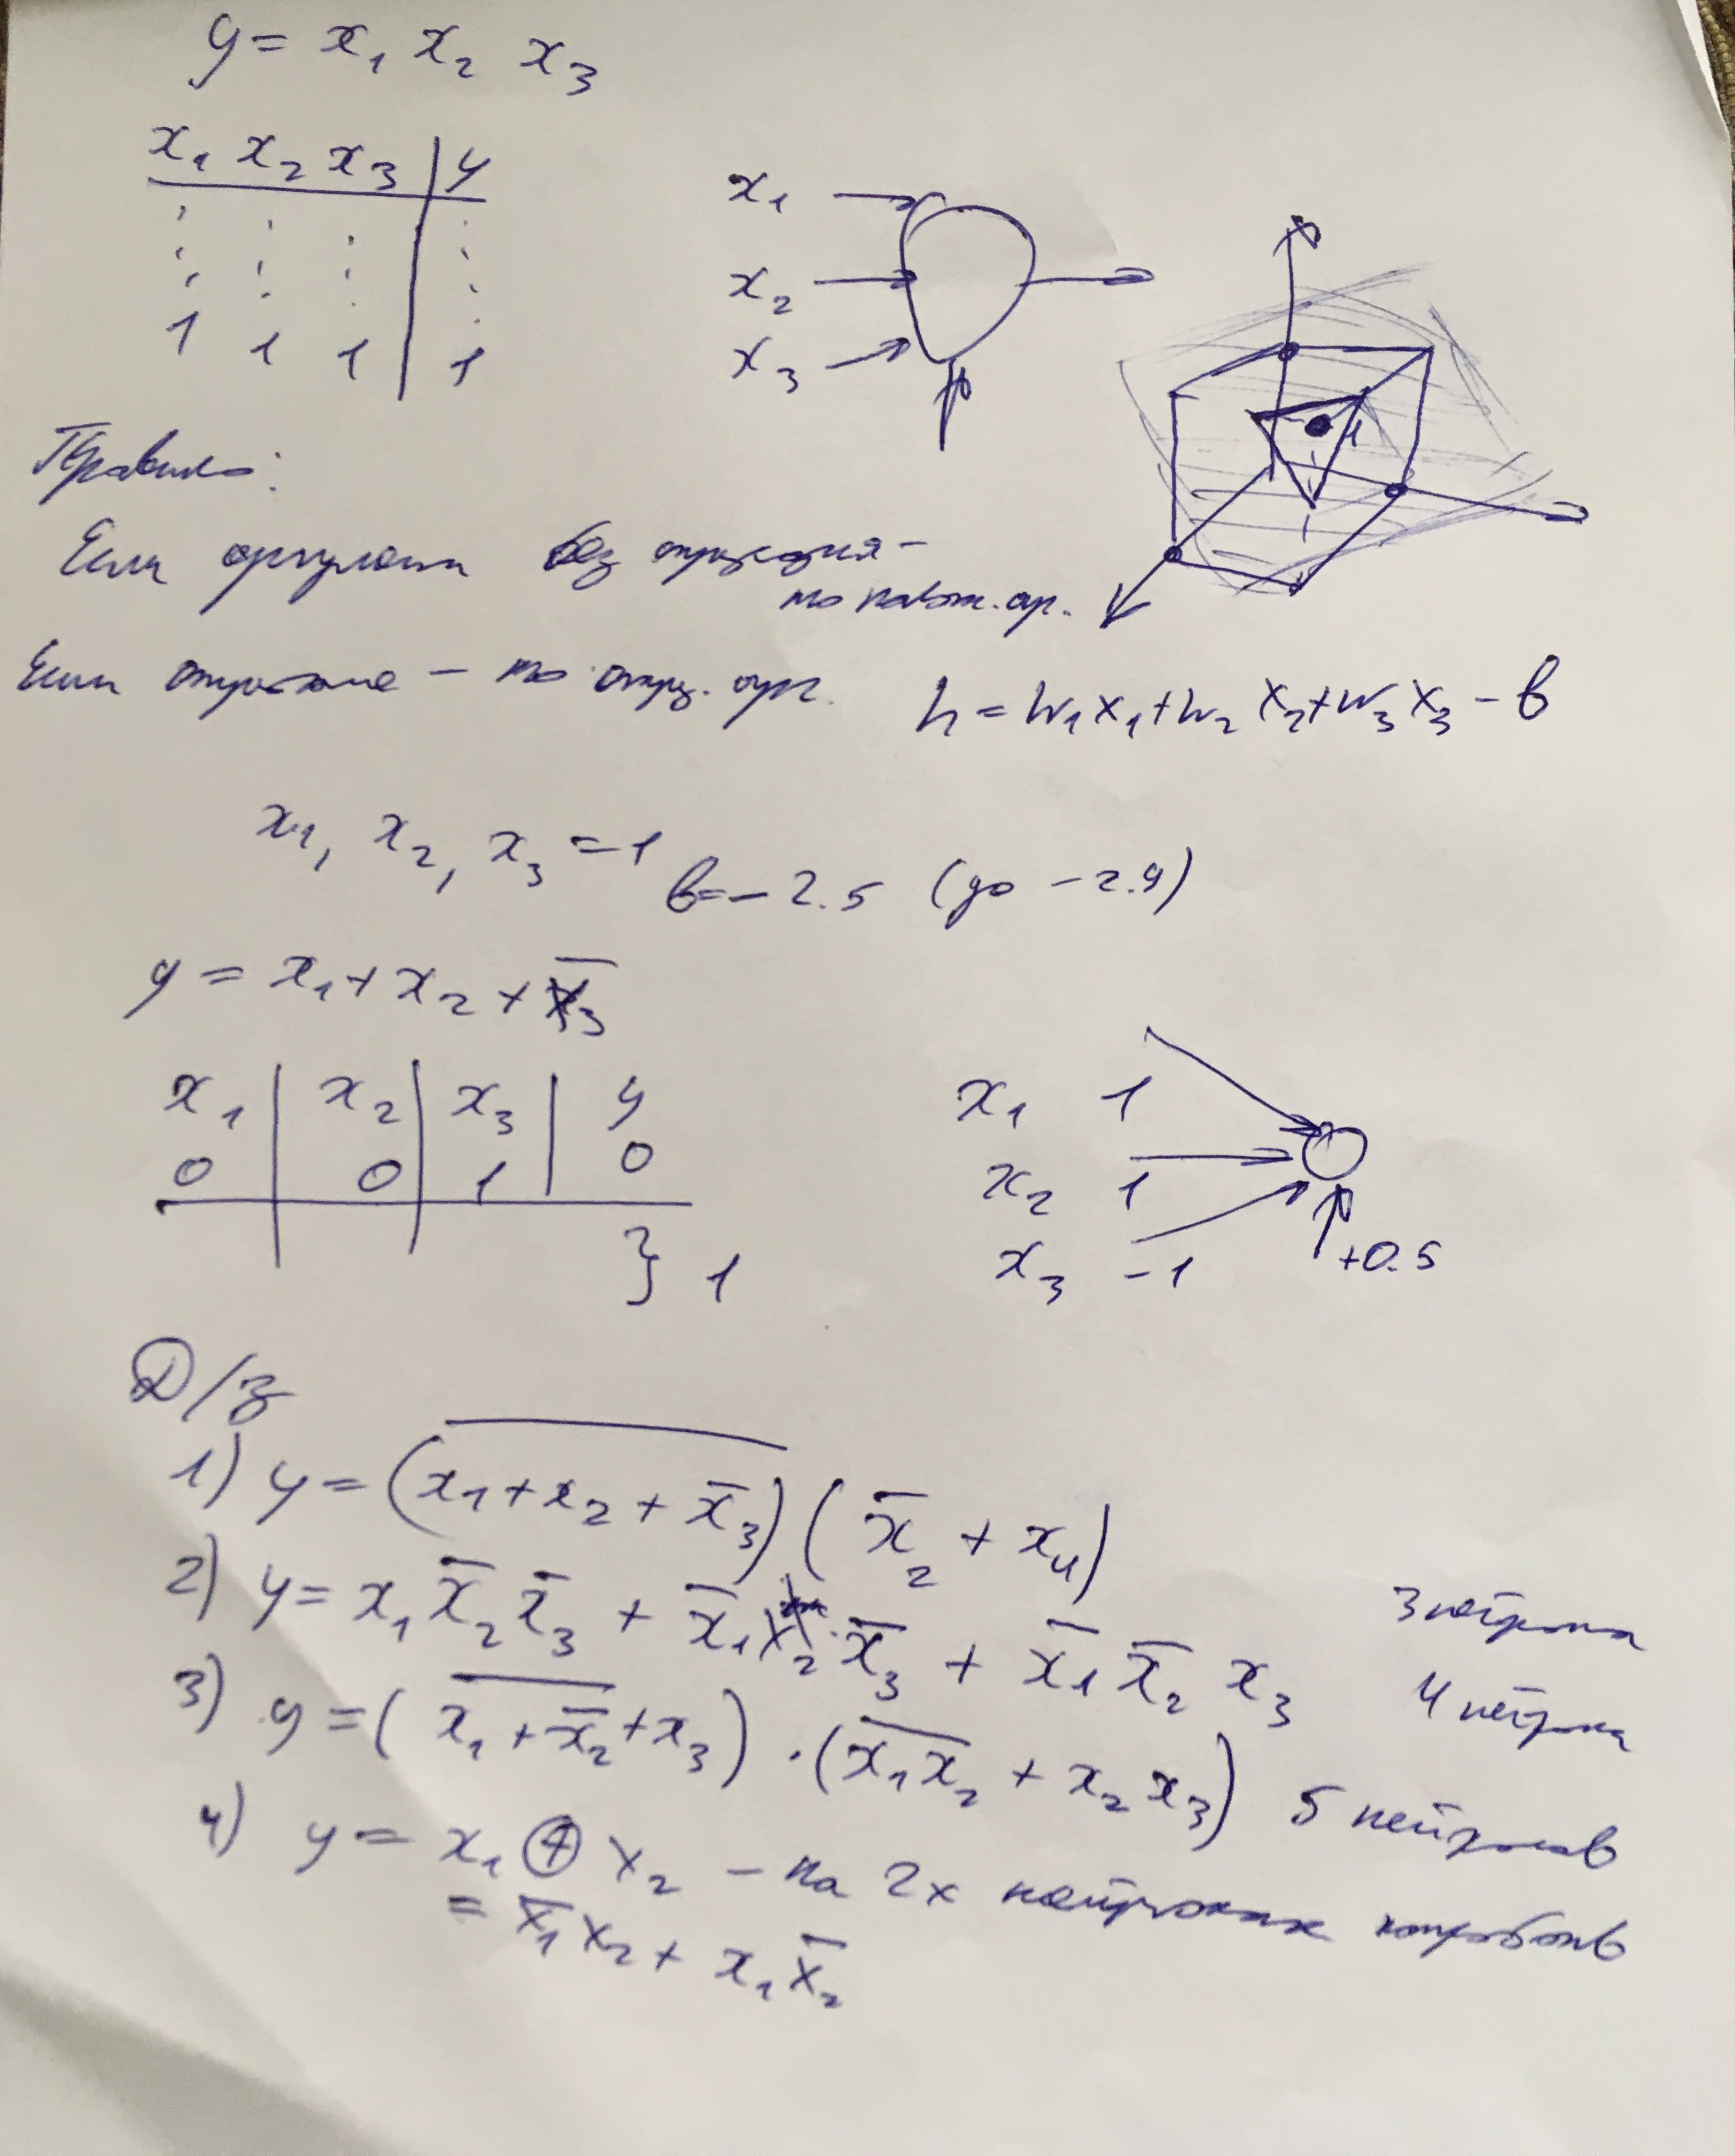 y = x₁ x₂ x₃
x₁ x₂ x₃ | y
1 1 1 | 1
x₁
x₂
x₃
1
Правило:
Если аргументы без отрицания –
то полож. ар.
Если отрицание – то отриц. арг.
h = w₁x₁ + w₂x₂ + w₃x₃ – b
x₁, x₂, x₃ = 1
b = – 2.5 (до – 2.9)
y = x₁ + x₂ + x̄₃
x₁ | x₂ | x₃ | y
0 | 0 | 1 | 0
} 1
x₁ 1
x₂ 1
x₃ -1
+0.5
Д/з
1) y = (x̅₁̅ ̅+̅ ̅x̅₂̅ ̅+̅ ̅x̄̅₃) (x̄₂ + x₄)
3 нейрона
2) y = x₁ x̄₂ x̄₃ + x̄₁ x₂ x̄₃ + x̄₁ x̄₂ x₃
4 нейрона
3) y = (x̅₁̅ ̅+̅ ̅x̄̅₂ + x₃) · (x̅₁̅x̅₂ + x₂ x₃) 5 нейронов
4) y = x₁ ⊕ x₂ – на 2х нейронах
= x̄₁ x₂ + x₁ x̄₂